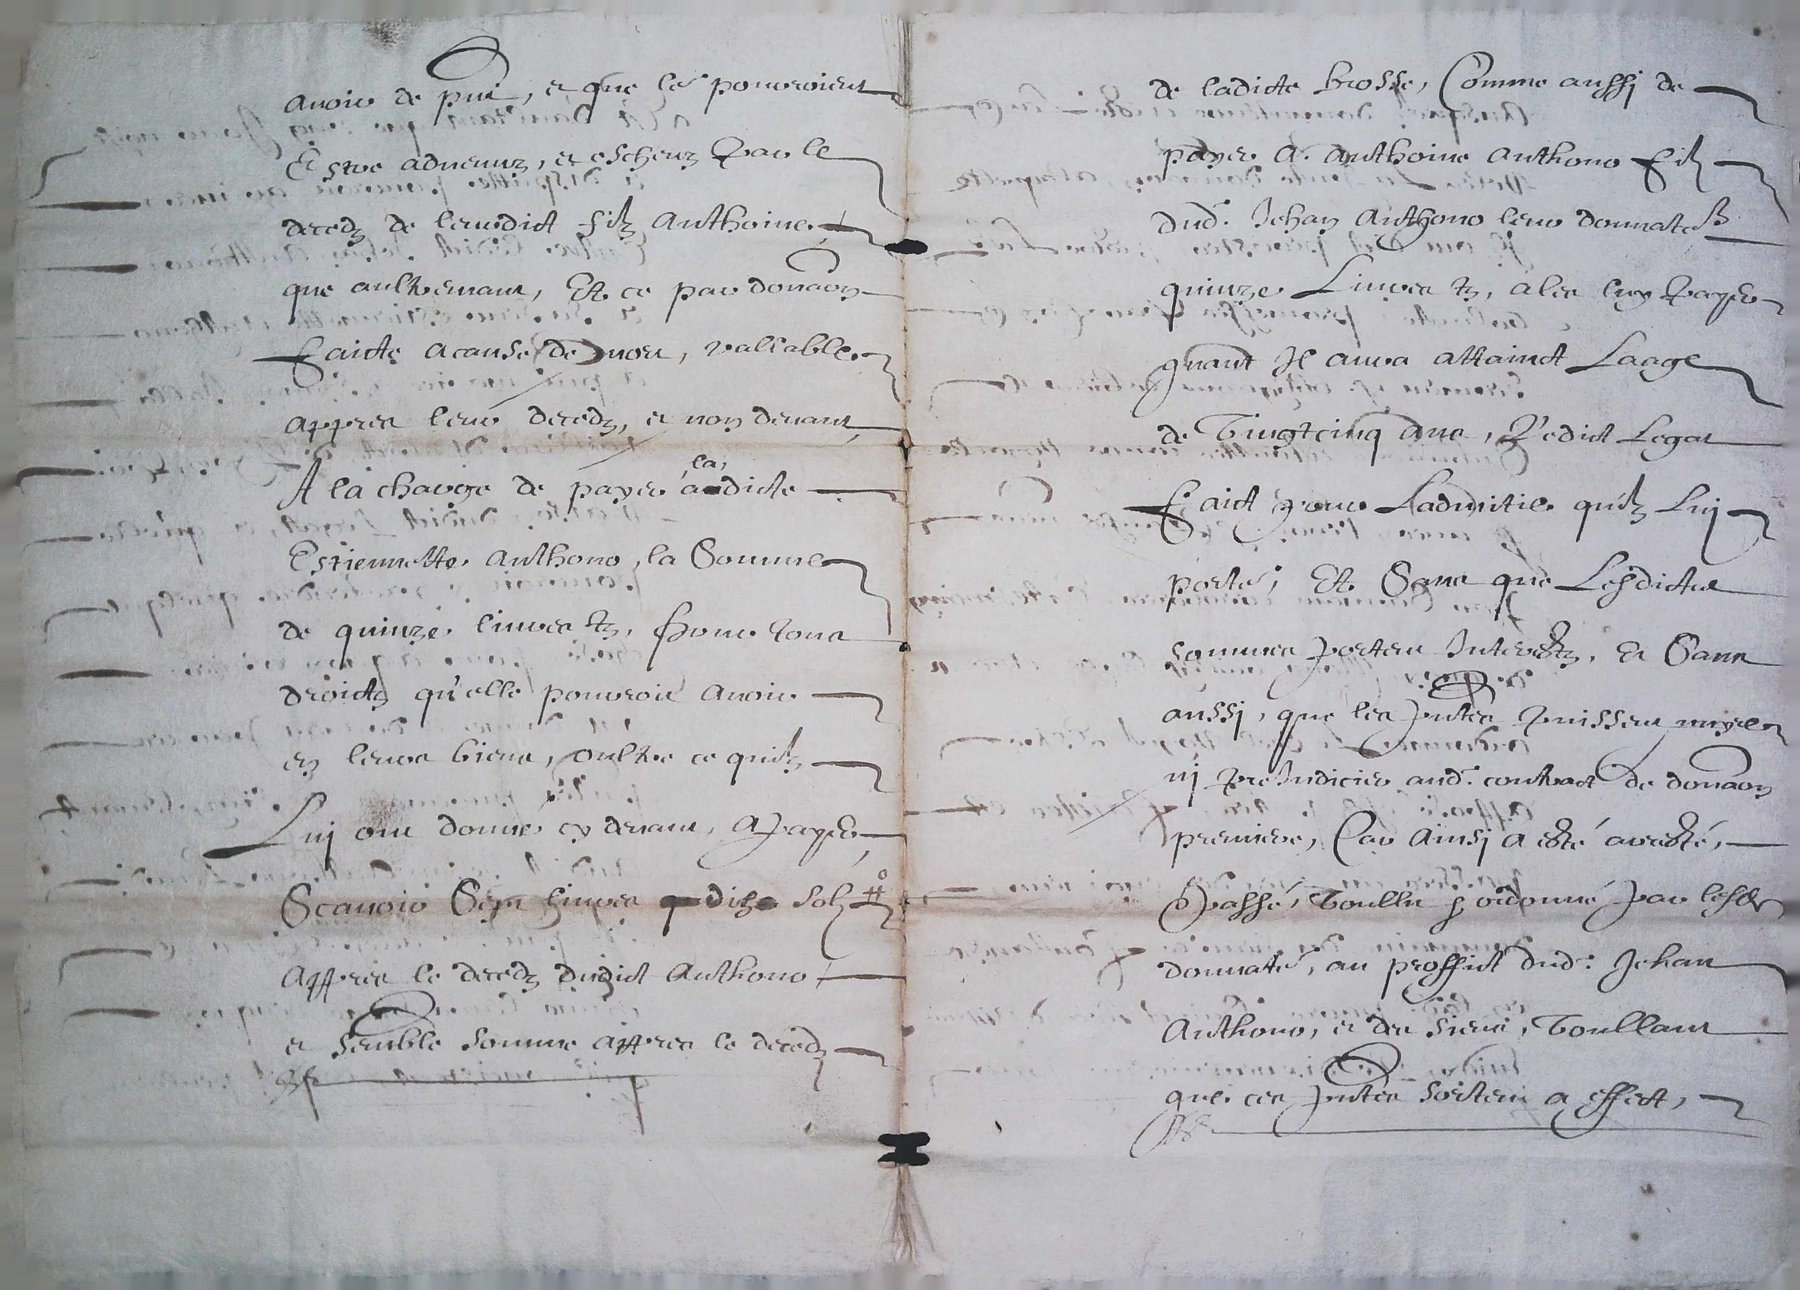 avoir de pnt, et que les pourroient
Estre advenuz, et escheuz par le
decedz de leurdict filz Anthoine,
que aultrement, Et ce par donaon
Faicte a cause de mort, vallable
appres leur decedz, et non devant,
A la charge de payer a la dicte
Estiennette Anthono, la Somme
de quinze livres tz, pour tous
droictz qu'elle pourroit avoir
en leurs biens, oultre ce quilz
Luy ont donné cy devant, a payer
Scavoir Sept livres dix solz
appres le decedz dudict Anthono,
et semble somme appres le decedz
de ladicte brosse, Comme aussj de
payer a Anthoine Anthono filz
dud. Jehan Anthono leur donnate
quinze Livres tz, a les luy payer
quant Jl aura attainct Laage
de Vingtcinq ans, Ledict Legat
Faict pour Ladmitié quilz Luy
porte, Et Sans que Lesdictes
sommes portent Interestz, Et Sans
aussj, que les pntes puissent nuyre
nj preJudicier aud. contract de donaon
premiere, Car ainsj a esté aresté,
Passé, Voullu et ordonné par lesd
donnate, au proffict dud. Jehan
Anthono, et des siens, Voullant
que ces pntes sortent a effect,